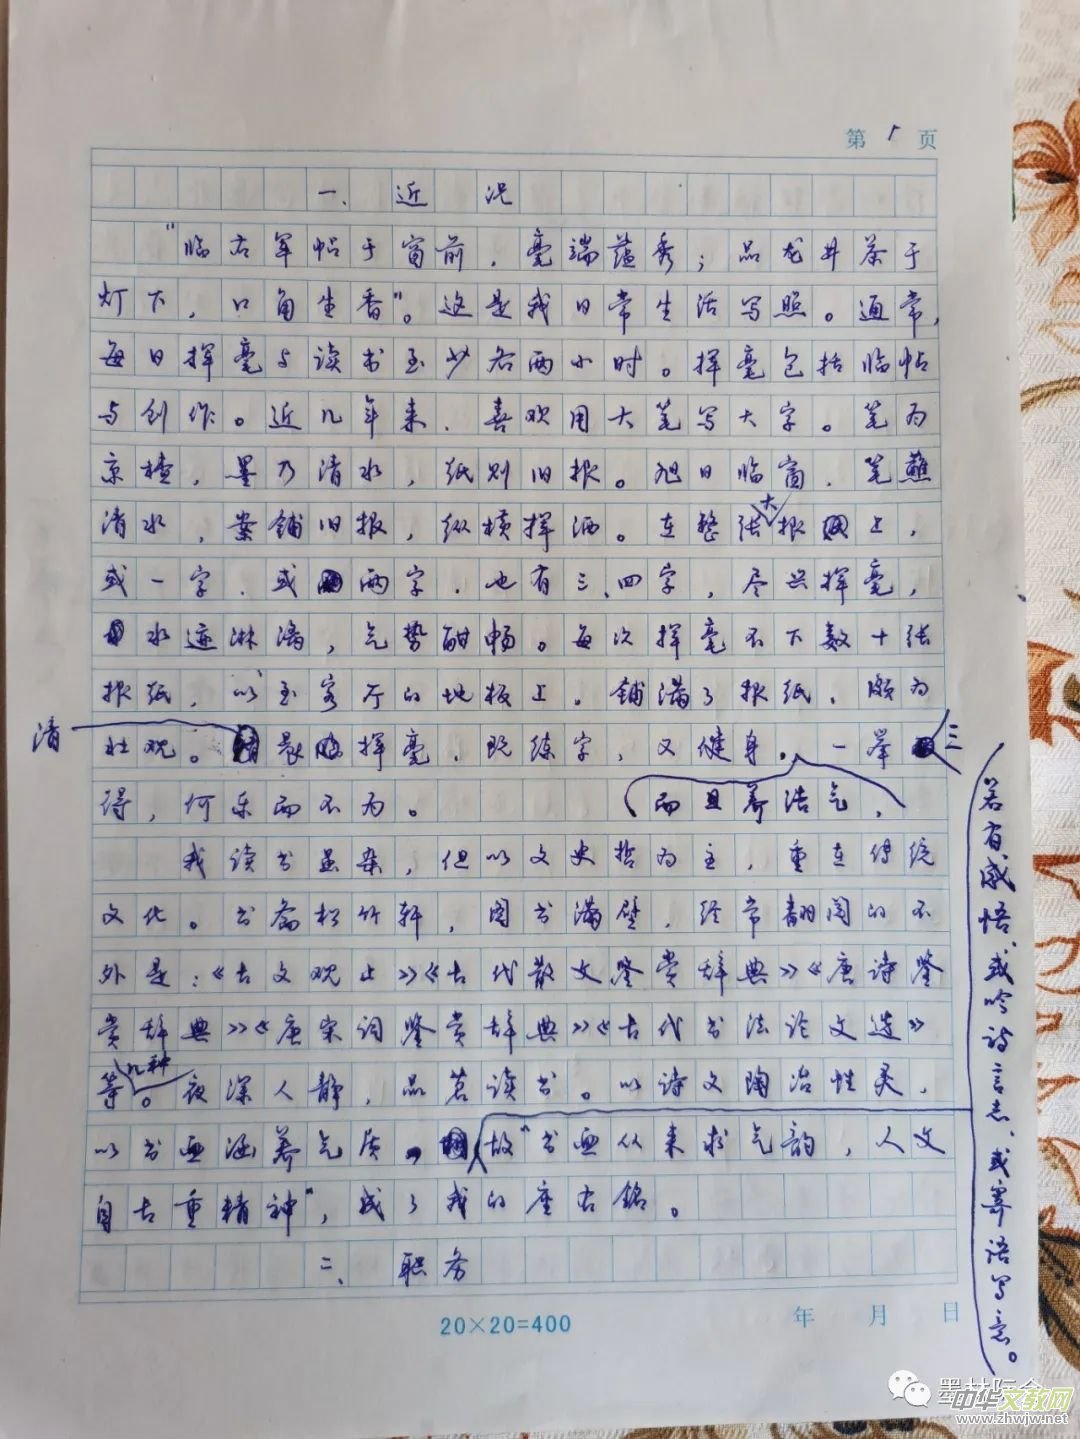 第1页
一、近况
“临右军帖于窗前，毫端蕴秀；品龙井茶于
灯下，口角生香”。这是我日常生活写照。通常，
每日挥毫与读书至少各两小时。挥毫包括临帖
与创作。近几年来，喜欢用大笔写大字。笔为
京楂，墨乃清水，纸则旧报。旭日临窗，笔蘸
清水，案铺旧报，纵横挥洒。在整张大报上，
或一字，或两字，也有三、四字，尽兴挥毫，
水迹淋漓，气势酣畅。每次挥毫不下数十张
报纸，以至客厅的地板上，铺满了报纸，颇为
壮观。清晨挥毫，既练字，又健身，而且养浩气，一举三
得，何乐而不为。
我读书虽杂，但以文史哲为主，重在传统
文化。书斋松竹轩，图书满壁，经常翻阅的不
外是：《古文观止》《古代散文鉴赏辞典》《唐诗鉴
赏辞典》《唐宋词鉴赏辞典》《古代书法论文选》
等几种。夜深人静，品茗读书。以诗文陶冶性灵，
以书画涵养气质，若有感悟，或吟诗言志，或寄语写意。故“书画从来求气韵，人文
自古重精神”，成了我的座右铭。
二、职务
20×20=400
年 月 日
墨林际会
中华文教网
www.zhwjw.net